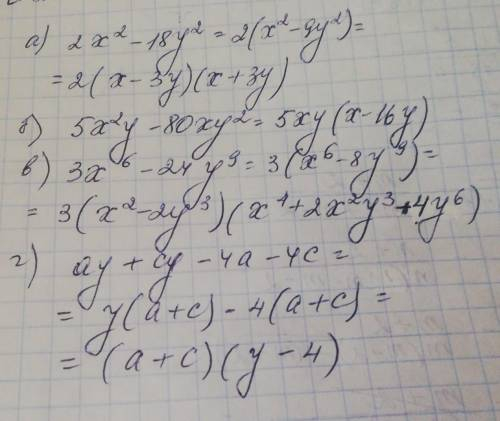 а) 2x² - 18y² = 2(x² - 9y²) =
= 2(x - 3y)(x + 3y)
б) 5x²y - 80xy² = 5xy(x - 16y)
в) 3x⁶ - 24y⁹ = 3(x⁶ - 8y⁹) =
= 3(x² - 2y³)(x⁴ + 2x²y³ + 4y⁶)
г) ay + cy - 4a - 4c =
= y(a + c) - 4(a + c) =
= (a + c)(y - 4)